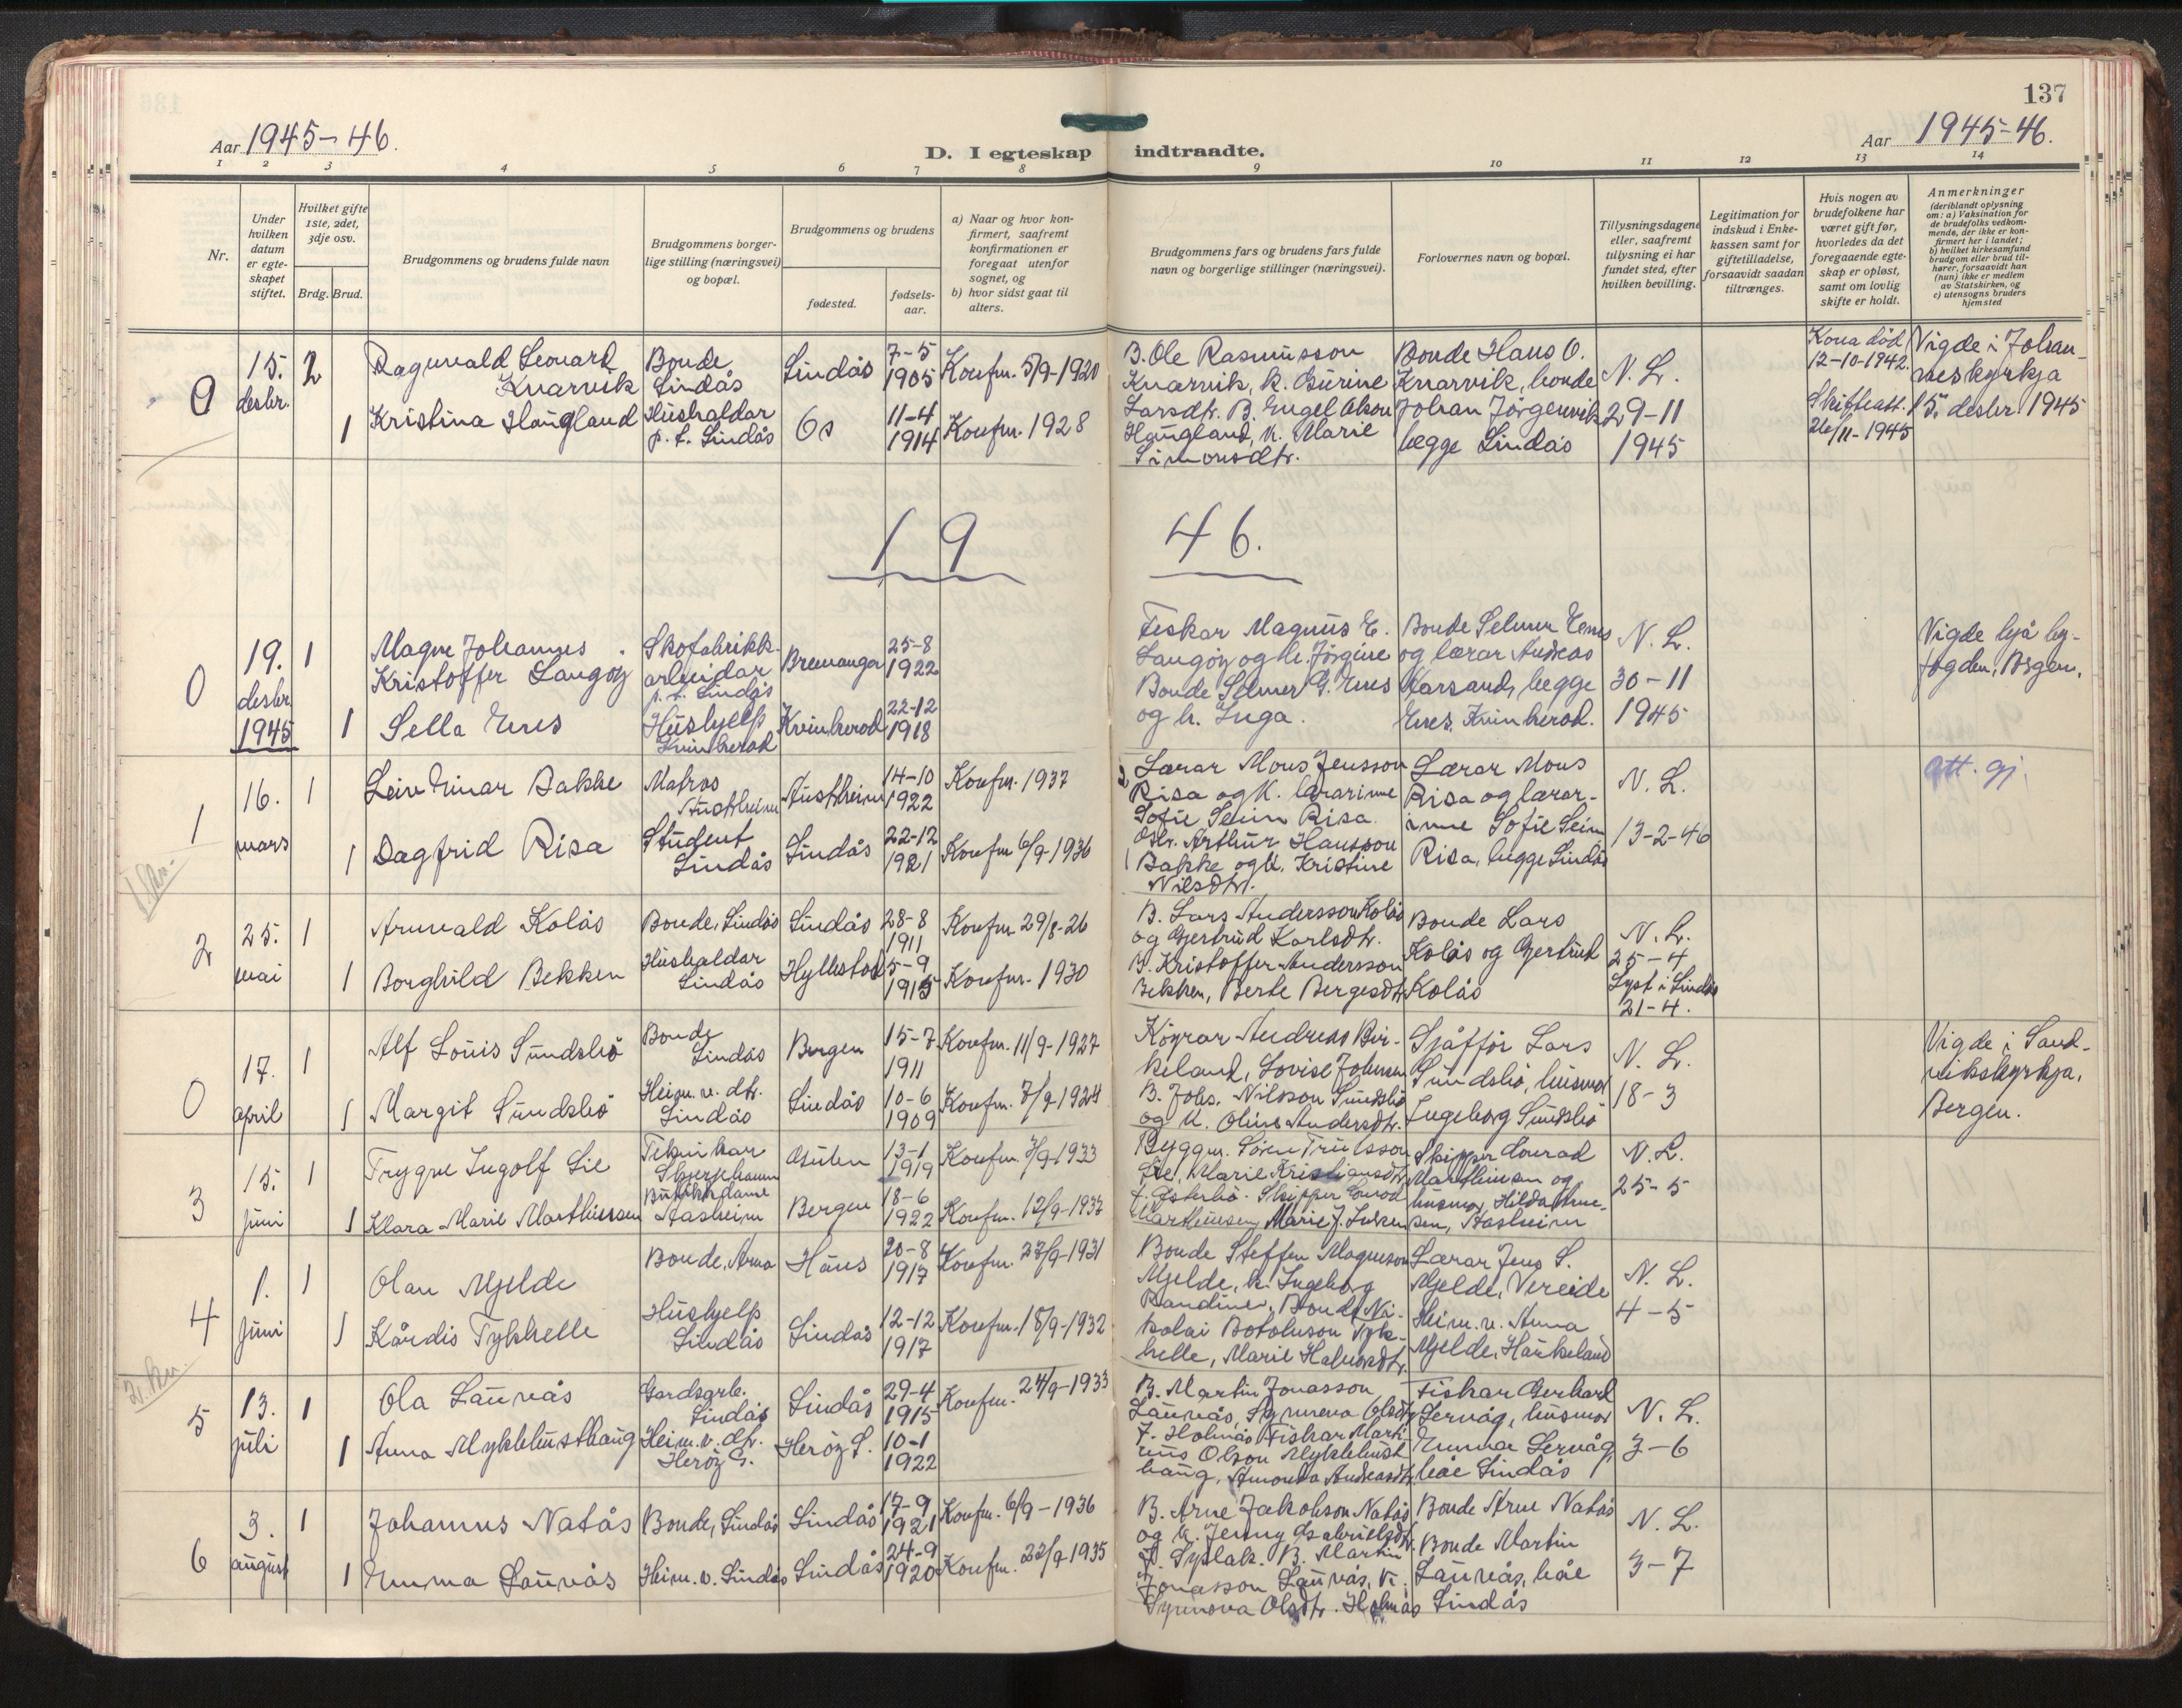 137
Aar 1945-46.
D. I egteskap indtraadte.
Aar 1945-46.
1 2 3 4 5 6 7 8 9 10 11 12 13 14
Nr.
Under hvilken datum er egte-skapet stiftet.
Hvilket gifte 1ste, 2det, 3dje osv.
Brdg. Brud.
Brudgommens og brudens fulde navn
Brudgommens borger-lige stilling (næringsvei) og bopæl.
Brudgommens og brudens
fødested.
fødsels-aar.
a) Naar og hvor kon-firmert, saafremt konfirmationen er foregaat utenfor sognet, og
b) hvor sidst gaat til alters.
Brudgommens fars og brudens fars fulde navn og borgerlige stillinger (næringsvei).
Forlovernes navn og bopæl.
Tillysningsdagene eller, saafremt tullysning ei har fundet sted, efter hvilken bevilling.
Legitimation for indskud i Enke-kassen samt for giftetilladelse, forsaavidt saadan tiltrænges.
Hvis nogen av brudefolkene har været gift før, hvorledes da det foregaaende egte-skap er opløst, samt om lovlig skifte er holdt.
Anmerkninger (deriblandt oplysning om: a) Vaksination for de brudefolks vedkom-mende, der ikke er kon-firmert her i landet; b) hvilket kirkesamfund brudgom eller brud til-hører, forsaavidt han (hun) ikke er medlem av Statskirken, og c) utensogns bruders hjemsted
0 15. desbr. 2
Ragnvald Leonard Knarvik
Bonde Lindås
Lindås
7-5 1905
Konfm. 5/9-1920
1 Kristina Haugland
Hushaldar p.t. Lindås
Os
11-4 1914
Konfm. 1928
B. Ole Rasmusson
Knarvik, k. Gurine
Larsdtr. B. Engel Olson
Haugland, k. Marie
Simonsdtr.
Bonde Hans O.
Knarvik, bonde
Johan Jörgenvik
begge Lindås
N. L.
29-11
1945
Kona död
12-10-1942.
Skifteatt.
26/11-1945
Vigde i Johan-
neskyrkja
15. desbr. 1945
19 46.
0 19. desbr. 1945 1
Magne Johannes
Kristoffer Langöy
Skofabrikk-
arbeidar
p.t. Lindås
Bremanger
25-8
1922
1 Sella Enes
Hushjelp
Kvinherad
Kvinherad
22-12
1918
Fiskar Magnus E.
Langöy og h. Jörgine
Bonde Selmer G. Enes
og h. Inga.
Bonde Selmer Enes
og lærar Andreas
begge
Enes, Kvinherad.
N. L.
30-11
1945
Vigde hjå by-
fogden, Bergen.
1 16. mars 1
Leiv Einar Bakke
Matros
Austrheim
Austrheim
14-10
1922
Konfm. 1937
1 Dagfrid Risa
Student
Lindås
Lindås
22-12
1921
Konfm 6/9-1936
2 Lærar Mons Jensson
Risa og k. lærarinne
Sofie Seim Risa.
1 Arthur Hansson
Bakke og k. Kristine
Nilsdtr.
Lærar Mons
Risa og lærar-
inne Sofie Seim
Risa, begge Lindås
N. L.
13-2-46
Att. gj.
2 25. mai 1
Arnvald Kolås
Bonde, Lindås
Lindås
28-8
1911
Konfm 29/8-26
1 Borghild Bekken
Hushaldar
Lindås
Hyllestad
5-9
1915
Konfm. 1930
B. Lars Andersson Kolås
og Gjertrud Karlsdtr.
Kristoffer Andersson
Bekken, Berte Bergesdtr.
Bonde Lars
Kolås og Gjertrud
Kolås
N. L.
25-4
Lyst i Lindås
21-4.
0 17. april 1
Alf Louis Sundsbö
Bonde
Lindås
Bergen
15-7
1911
Konfm. 11/9-1927
1 Margit Sundsbö
Heim. v. dtr.
Lindås
Lindås
10-6
1909
Konfm. 7/9-1924
Köyrar Andreas Bir-
keland, Lovise Johnsen
B. Johs. Nilsson Sundsbö
og k. Oline Andersdtr.
Sjåfför Lars
Sundsbö, husmor
Ingeborg Sundsbö
N. L.
18-3
Vigde i Sand-
vikskyrkja.
Bergen.
3 15. juni 1
Trygve Ingolf Lie
Teknikar
Skjerjehamn
Gulen
13-1
1919
Konfm. 3/9-1933
1 Klara Marie Marthinsen
Butikkdame
Bergen
18-6
1922
Konfm. 12/9-1937
Byggm. Sören Trulsson
Lie, Marie Kristiansdtr.
Skipper Conrad
Marthinsen, Marie J.
Skipper Conrad
Marthinsen og
husmor, Hilda
N. L.
25-5
4 1. juni 1
Olav Mjelde
Bonde, Arna
Haus
20-8
1917
Konfm. 27/9-1931
1 Kårdis Tykkhelle
Hushjelp
Lindås
Lindås
12-12
1917
Konfm. 18/9-1932
Bonde Steffen Magneson
Mjelde, k. Ingeborg
Bonde Ni-
kolai Botolvson Tykk-
helle, Marie Halvorsdtr.
Lærar Jens S.
Mjelde, Vereide
Heim. v. Anna
Mjelde, Haukeland
N. L.
4-5
5 13. juli 1
Ola Launvås
Gardsarb.
Lindås
Lindås
29-4
1915
Konfm. 24/9-1933
1 Anna Myklebusthaug
Heim. v. dtr.
Heröy S.
Heröy S.
10-1
1922
B. Martin Jonasson
Launvås, Synneva Olsdtr.
f. Holmås Fiskar Marti-
nus Olson Myklebust-
haug, Amanda Andreasdtr.
Fiskar Gerhard
Servåg, husmor
Emma Servåg,
båe Lindås
N. L.
3-6
6 3. august 1
Johannes Natås
Bonde, Lindås
Lindås
17-9
1921
Konfm. 6/9-1936
1 Emma Launvås
Heim. v. Lindås
Lindås
24-9
1920
Konfm. 22/9-1935
B. Arne Jakobson Natås
og k. Jenny Gabrielsdtr.
B. Martin
Jonasson Launvås, k.
Synnova Olsdtr. Holmås
Bonde Arne Natås
Bonde Martin
Launvås, båe
Lindås
N. L.
3-7